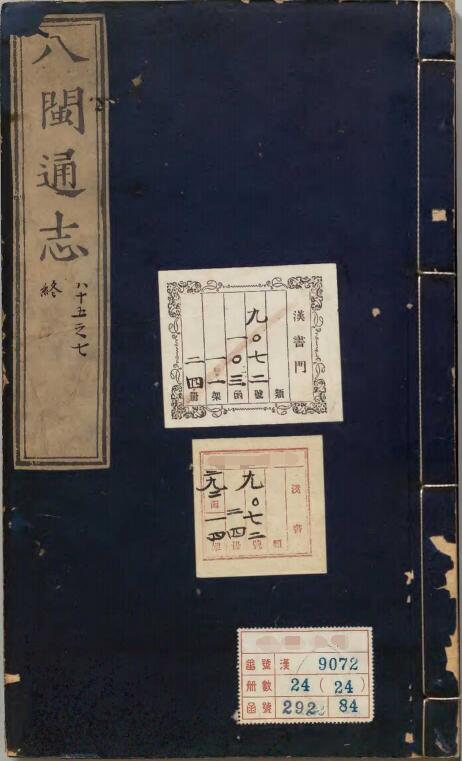 八閩通志
八十五之七
終
漢書門
類
九〇七二號
一〇三函
一一架
二四冊
漢書
類
九〇七二號
二四冊
番號 漢 9072
冊數 24 (24)
函號 292 84